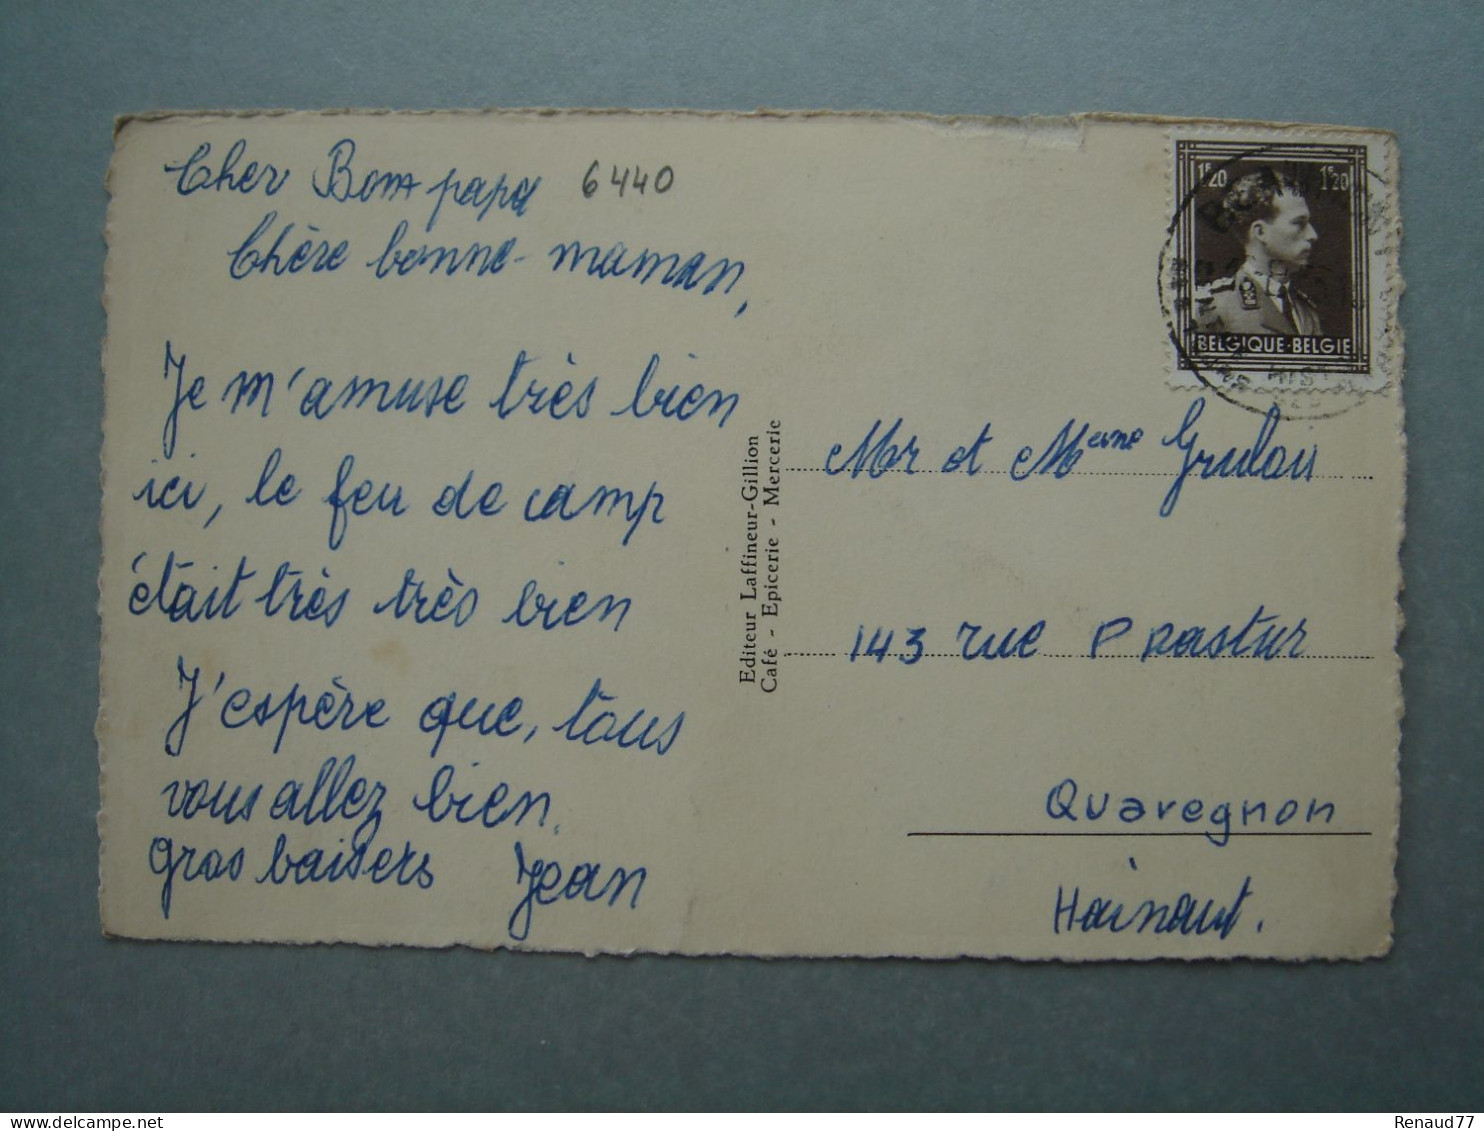 Cher Bon papa 6440
Chère bonne-maman,
Je m'amuse très bien
ici, le feu de camp
était très très bien
J'espère que, tous
vous allez bien.
Gros baisers Jean
Editeur Laffineur-Gillion
Café - Epicerie - Mercerie
1F20 1F20
BELGIQUE-BELGIE
Mr et Meme
143 rue P Pastur
Quaregnon
Hainaut.
Renaud77
delcampe.net